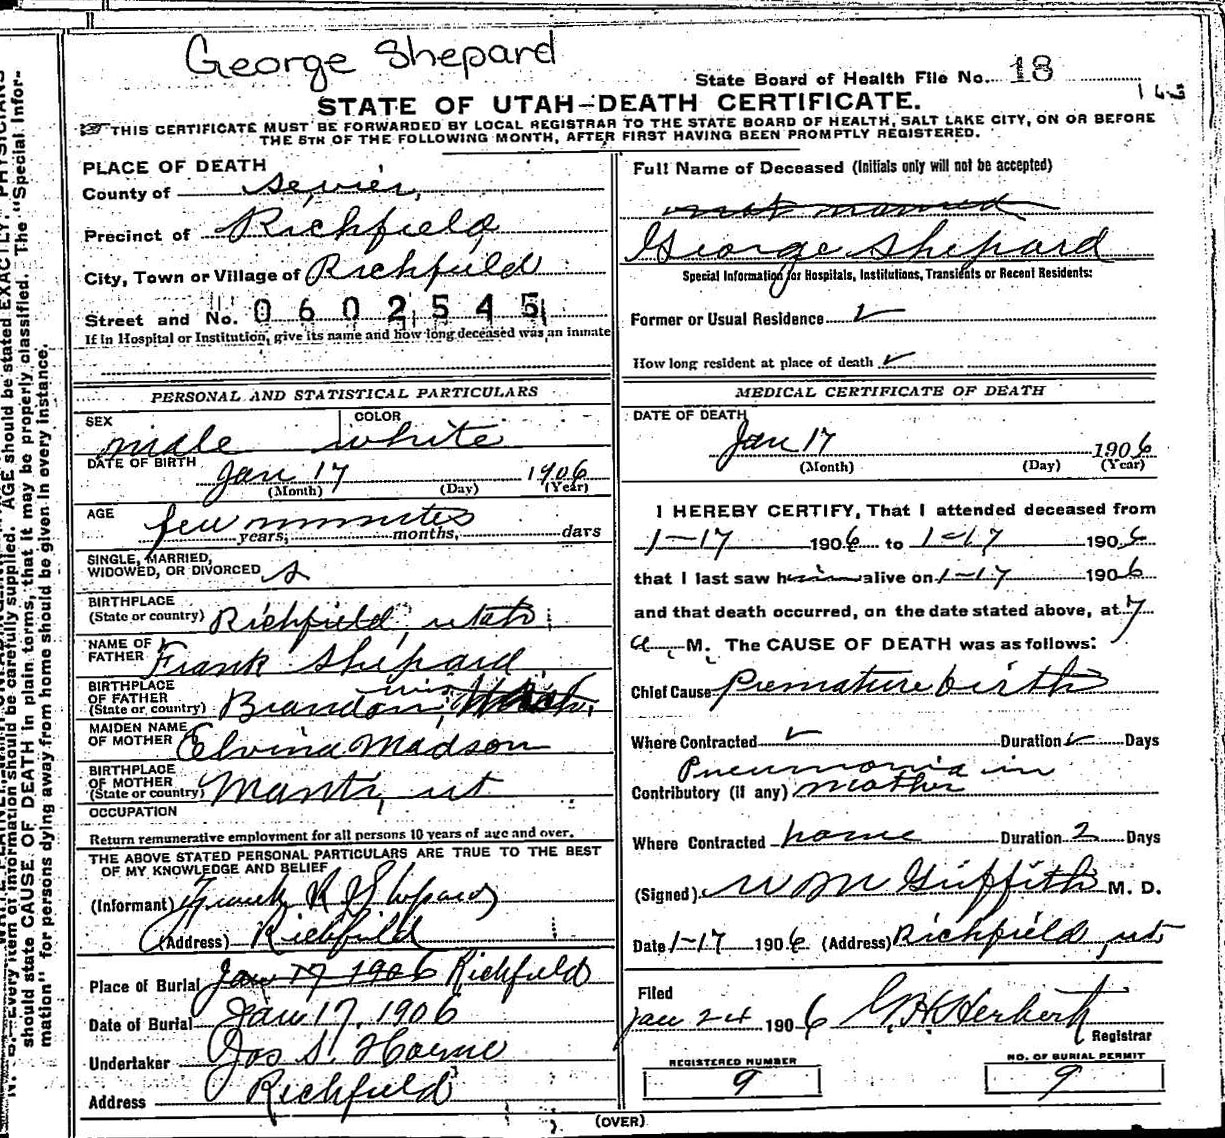 George Shepard
State Board of Health File No. 18
STATE OF UTAH—DEATH CERTIFICATE.
THIS CERTIFICATE MUST BE FORWARDED BY LOCAL REGISTRAR TO THE STATE BOARD OF HEALTH, SALT LAKE CITY, ON OR BEFORE
THE 5TH OF THE FOLLOWING MONTH, AFTER FIRST HAVING BEEN PROMPTLY REGISTERED.
PLACE OF DEATH
County of Sevier,
Precinct of Richfield
City, Town or Village of Richfield
Street and No. 0602545
If in Hospital or Institution, give its name and how long deceased was an inmate
PERSONAL AND STATISTICAL PARTICULARS
SEX COLOR
male white
DATE OF BIRTH Jan 17 1906
(Month) (Day) (Year)
AGE few minutes
years, months, days
SINGLE, MARRIED,
WIDOWED, OR DIVORCED s
BIRTHPLACE
(State or country) Richfield, utah
NAME OF
FATHER Frank Shepard
BIRTHPLACE
OF FATHER
(State or country) Brandon, wis
MAIDEN NAME
OF MOTHER Elvina Madson
BIRTHPLACE
OF MOTHER
(State or country) Manti, ut
OCCUPATION
Return remunerative employment for all persons 10 years of age and over.
THE ABOVE STATED PERSONAL PARTICULARS ARE TRUE TO THE BEST
OF MY KNOWLEDGE AND BELIEF
(Informant) Frank R Shepard
(Address) Richfield
Place of Burial Jan 17 1906 Richfield
Date of Burial Jan 17, 1906
Undertaker Jos S. Horne
Address Richfield
Full Name of Deceased (Initials only will not be accepted)
not named
George Shepard
Special Information for Hospitals, Institutions, Transients or Recent Residents:
Former or Usual Residence ✓
How long resident at place of death ✓
MEDICAL CERTIFICATE OF DEATH
DATE OF DEATH
Jan 17 1906
(Month) (Day) (Year)
I HEREBY CERTIFY, That I attended deceased from
1-17 1906 to 1-17 1906
that I last saw him alive on 1-17 1906
and that death occurred, on the date stated above, at 7
a. M. The CAUSE OF DEATH was as follows:
Chief Cause Premature birth
Where Contracted ✓ Duration ✓ Days
Pneumonia in
Contributory (if any) mother
Where Contracted home Duration 2 Days
(Signed) W M Griffith M. D.
Date 1-17 1906 (Address) Richfield, ut
Filed
Jan 24 1906 G H Herbert
Registrar
REGISTERED NUMBER
9
NO. OF BURIAL PERMIT
9
(OVER)
should state CAUSE OF DEATH in plain terms, that it may be properly classified. The "Special Infor-
mation" for persons dying away from home should be given in every instance.